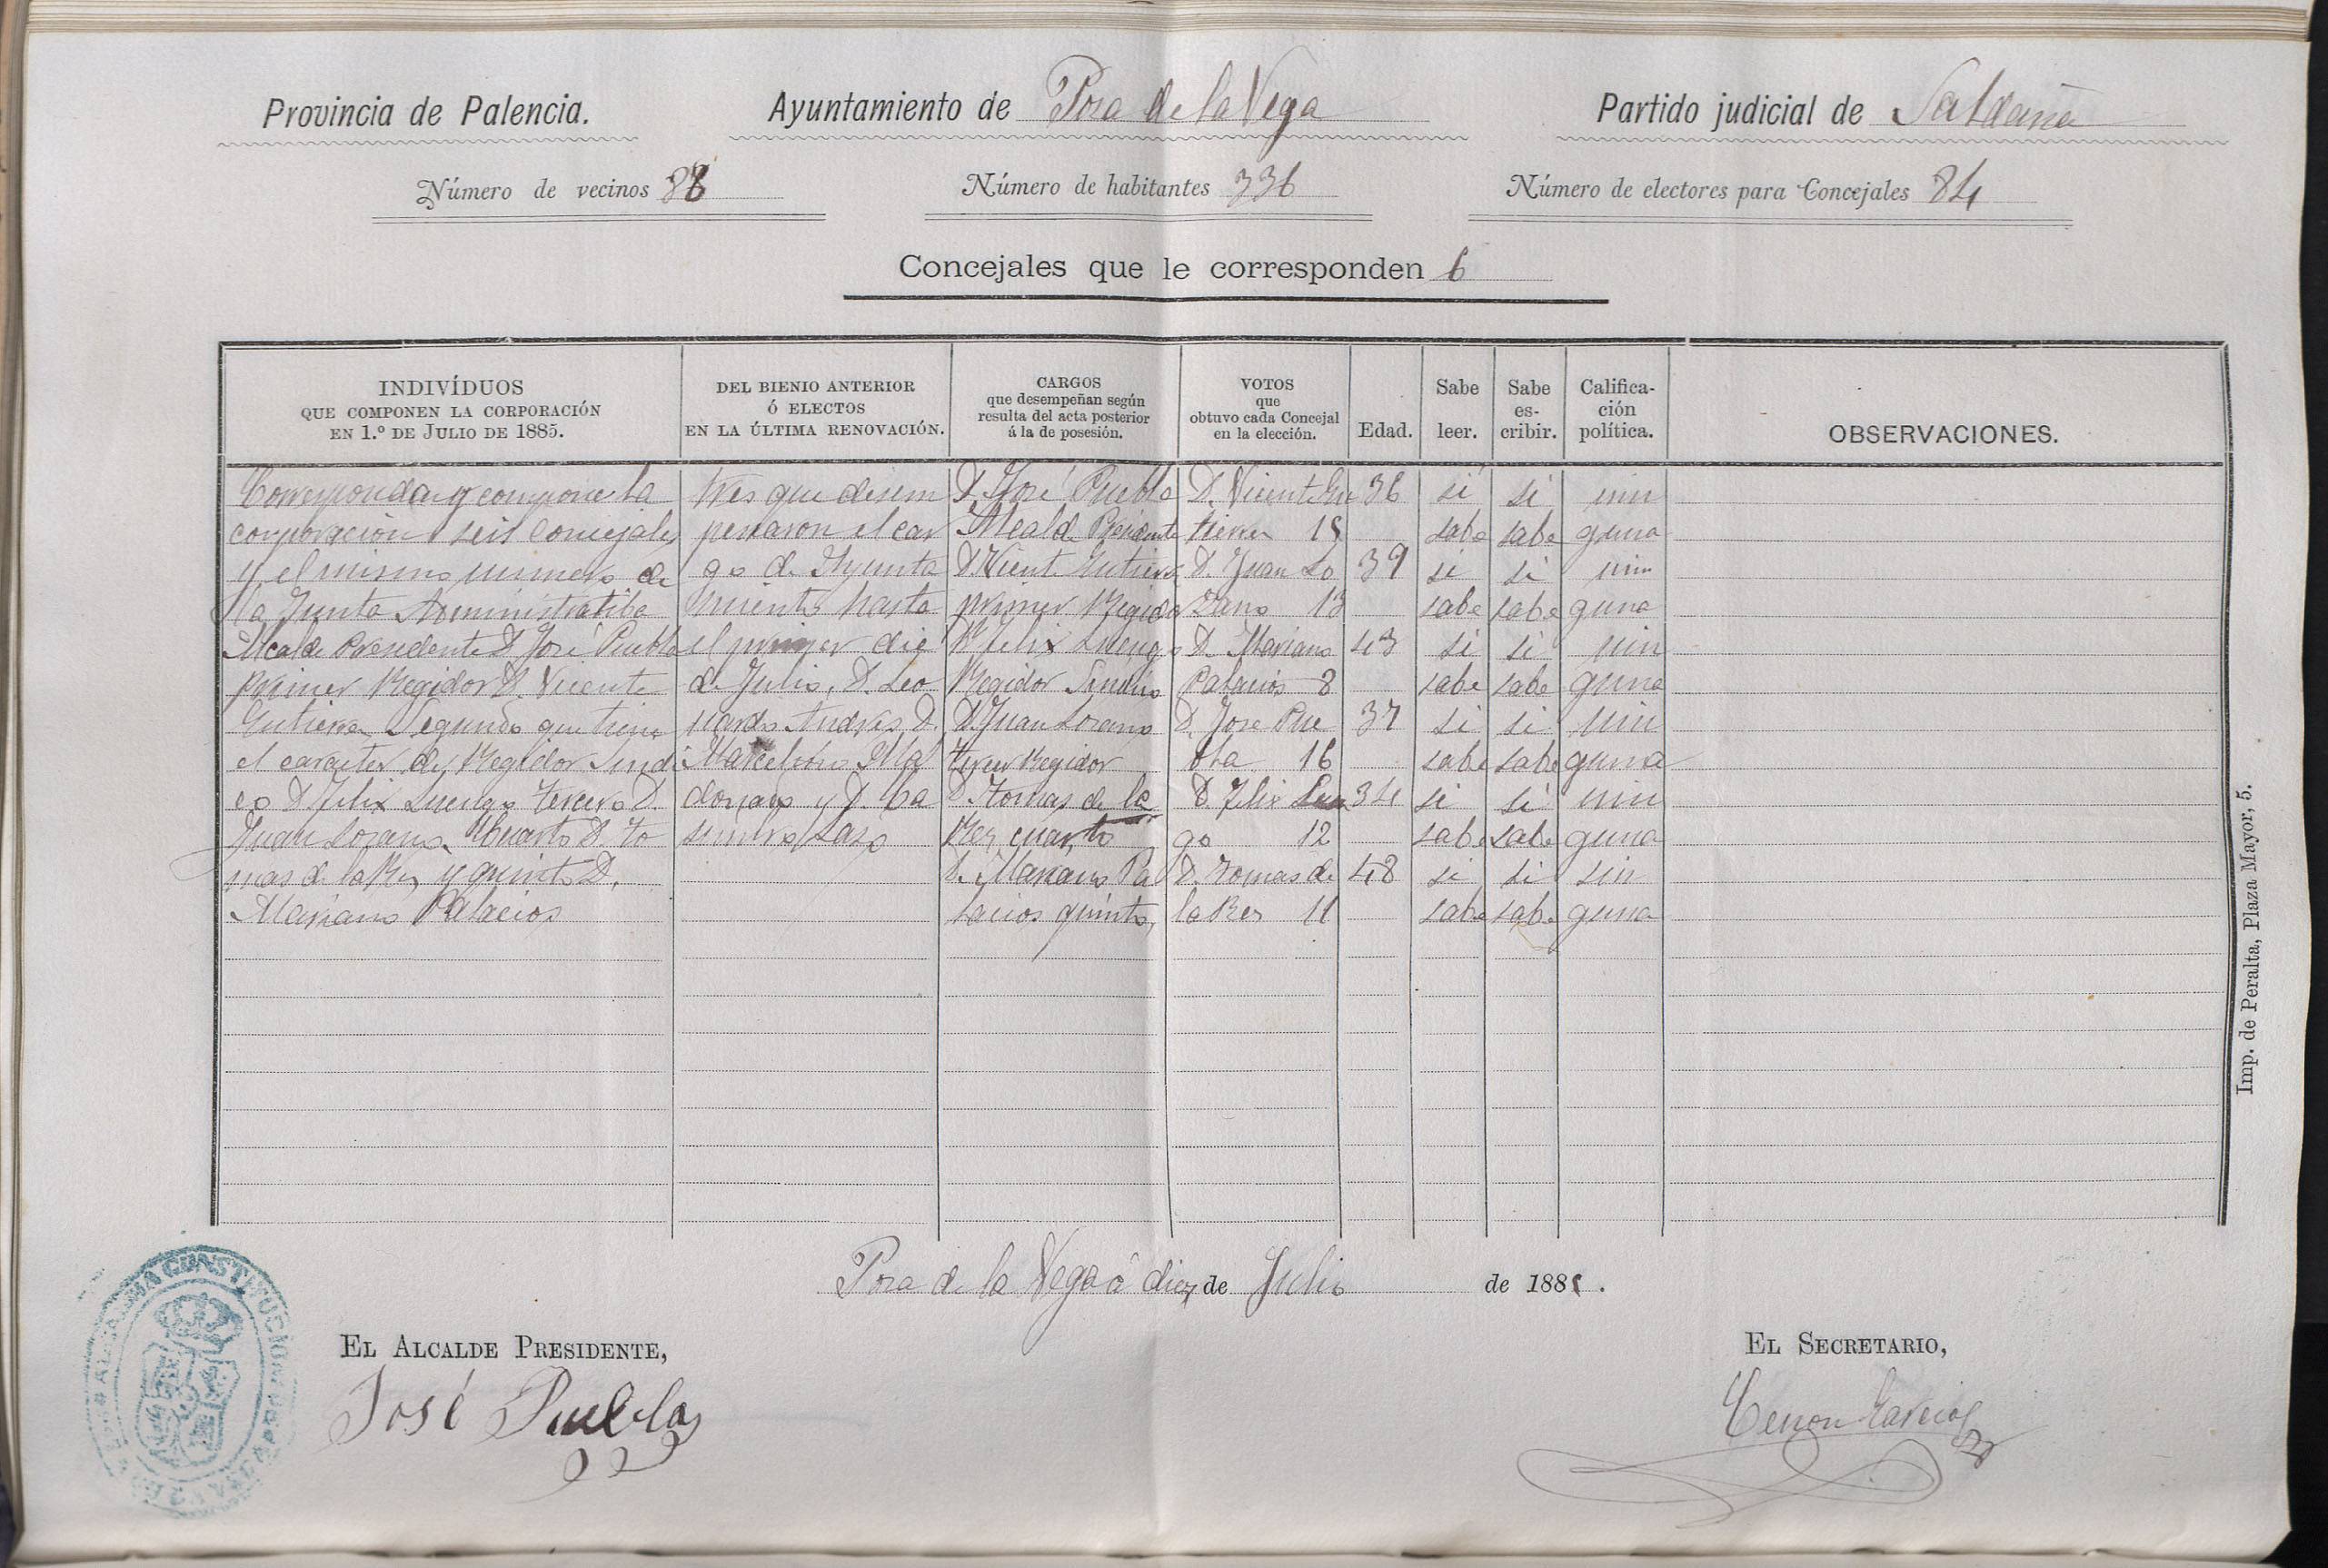 Provincia de Palencia.
Ayuntamiento de Poza de la Vega
Partido judicial de Saldaña
Número de vecinos 88
Número de habitantes 336
Número de electores para Concejales 84
Concejales que le corresponden 6
INDIVÍDUOS
QUE COMPONEN LA CORPORACIÓN
EN 1.º DE JULIO DE 1885.
DEL BIENIO ANTERIOR
Ó ELECTOS
EN LA ÚLTIMA RENOVACIÓN.
CARGOS
que desempeñan según
resulta del acta posterior
á la de posesión.
VOTOS
que
obtuvo cada Concejal
en la elección.
Edad.
Sabe
leer.
Sabe
es-
cribir.
Califica-
ción
política.
OBSERVACIONES.
Corresponden y compone la
corporacion seis concejales
y el mismo numero de
la Junta Administratiba
Alcalde Presidente D. José Puebla
primer Regidor D. Vicente
Gutierrez Segundo que tiene
el caracter de Regidor Sindi
co D. Felix Luengo tercero D.
Juan Lozano Cuarto D. To
mas de la Rez y quinto D.
Mariano Palacios
tres que desem
peñaron el car
go de Ayunta
miento hasta
el primer dia
de Julio, D. Leo
nardo Andres D.
Marcelino Mal
donado y D. Ca
simiro Lazo
D. José Puebla
Alcalde Presidente
D. Vicente Gutierrez
primer Regidor
D. Felix Luengo
Regidor Sindico
D. Juan Lozano
tercer Regidor
D. Tomas de la
Rez cuarto
D. Mariano Pa
lacios quinto,
D. Vicente Gu
tierrez 18
D. Juan Lo
zano 13
D. Mariano
Palacios 8
D. Jose Pue
bla 16
D. Felix Luen
go 12
D. Tomas de
la Rez 11
36
39
43
37
34
48
si
sabe
si
sabe
si
sabe
si
sabe
si
sabe
si
sabe
si
sabe
si
sabe
si
sabe
si
sabe
si
sabe
si
sabe
nin
guna
nin
guna
nin
guna
nin
guna
nin
guna
nin
guna
Poza de la Vega á diez de Julio de 1885.
EL ALCALDE PRESIDENTE,
José Puebla
EL SECRETARIO,
Cenon Garcia
Imp. de Peralta, Plaza Mayor, 5.
ALCALDIA CONSTITUCIONAL